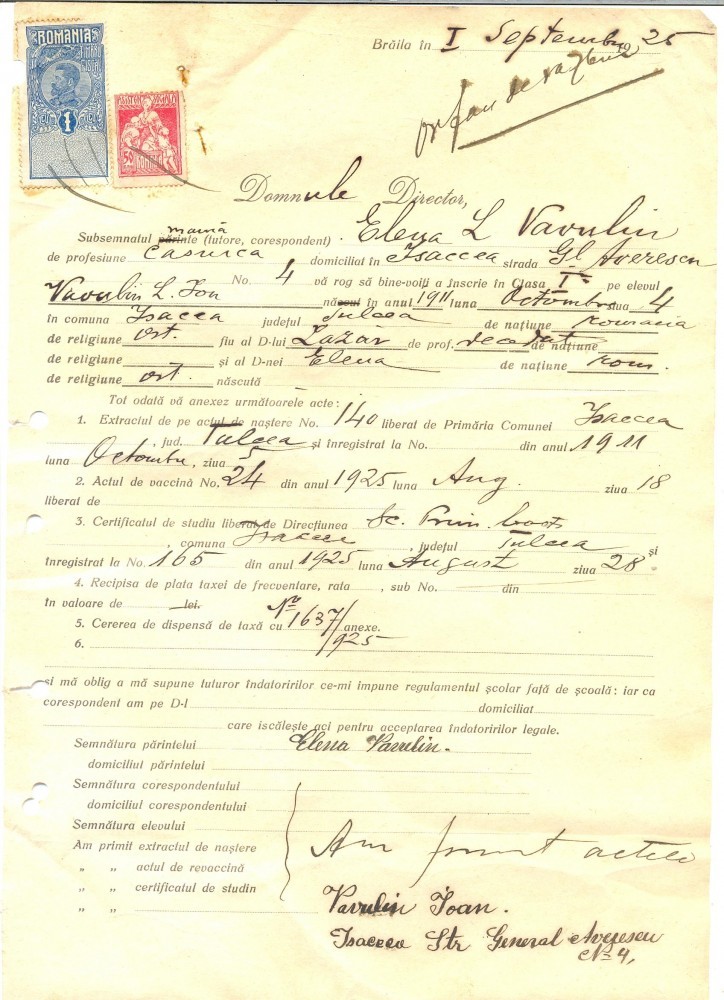 ROMANIA
1
50 BANI
ROMÂNIA
Brăila în I Septembrie 1925
orfan de razboiu
Domnule Director,
mamă
Subsemnatul părinte (tutore, corespondent) Elena L Vavulin
de profesiune casnica domiciliat în Isaccea strada Gl Averescu
No. 4 vă rog să bine-voiți a înscrie în Clasa I-a pe elevul
Vavulin L. Ion născut în anul 1911 luna Octombrie ziua 4
în comuna Isaccea județul Tulcea de națiune romana
de religiune ort. fiu al D-lui Lazăr de prof. decedat de națiune
de religiune și al D-nei Elena de națiune rom.
de religiune ort. născută
Tot odată vă anexez următoarele acte :
1. Extractul de pe actul de naștere No. 140 liberat de Primăria Comunei Isaccea
, jud. Tulcea și înregistrat la No. din anul 1911
luna Octombrie, ziua 5
2. Actul de vaccină No. 24 din anul 1925 luna Aug. ziua 18
liberat de
3. Certificatul de studiu liberat de Direcțiunea Sc. Prim.
, comuna Isaccea , județul Tulcea și
înregistrat la No. 165 din anul 1925 luna August ziua 28
4. Recipisa de plata taxei de frecventare, rata , sub No. din
în valoare de lei.
5. Cererea de dispensă de taxă cu No 1637/925 anexe.
6.
și mă oblig a mă supune tuturor îndatoririlor ce-mi impune regulamentul școlar față de școală : iar ca
corespondent am pe D-l domiciliat
care iscălește aci pentru acceptarea îndotoririlor legale.
Semnătura părintelui Elena Vavulin.
domiciliul părintelui
Semnătura corespondentului
domiciliul corespondentului
Semnătura elevului
Am primit extractul de naștere Am primit actele
„ „ actul de revaccină
„ „ certificatul de studin
„ „
Vavulin Ioan.
Isaccea Str General Averescu
No 4,